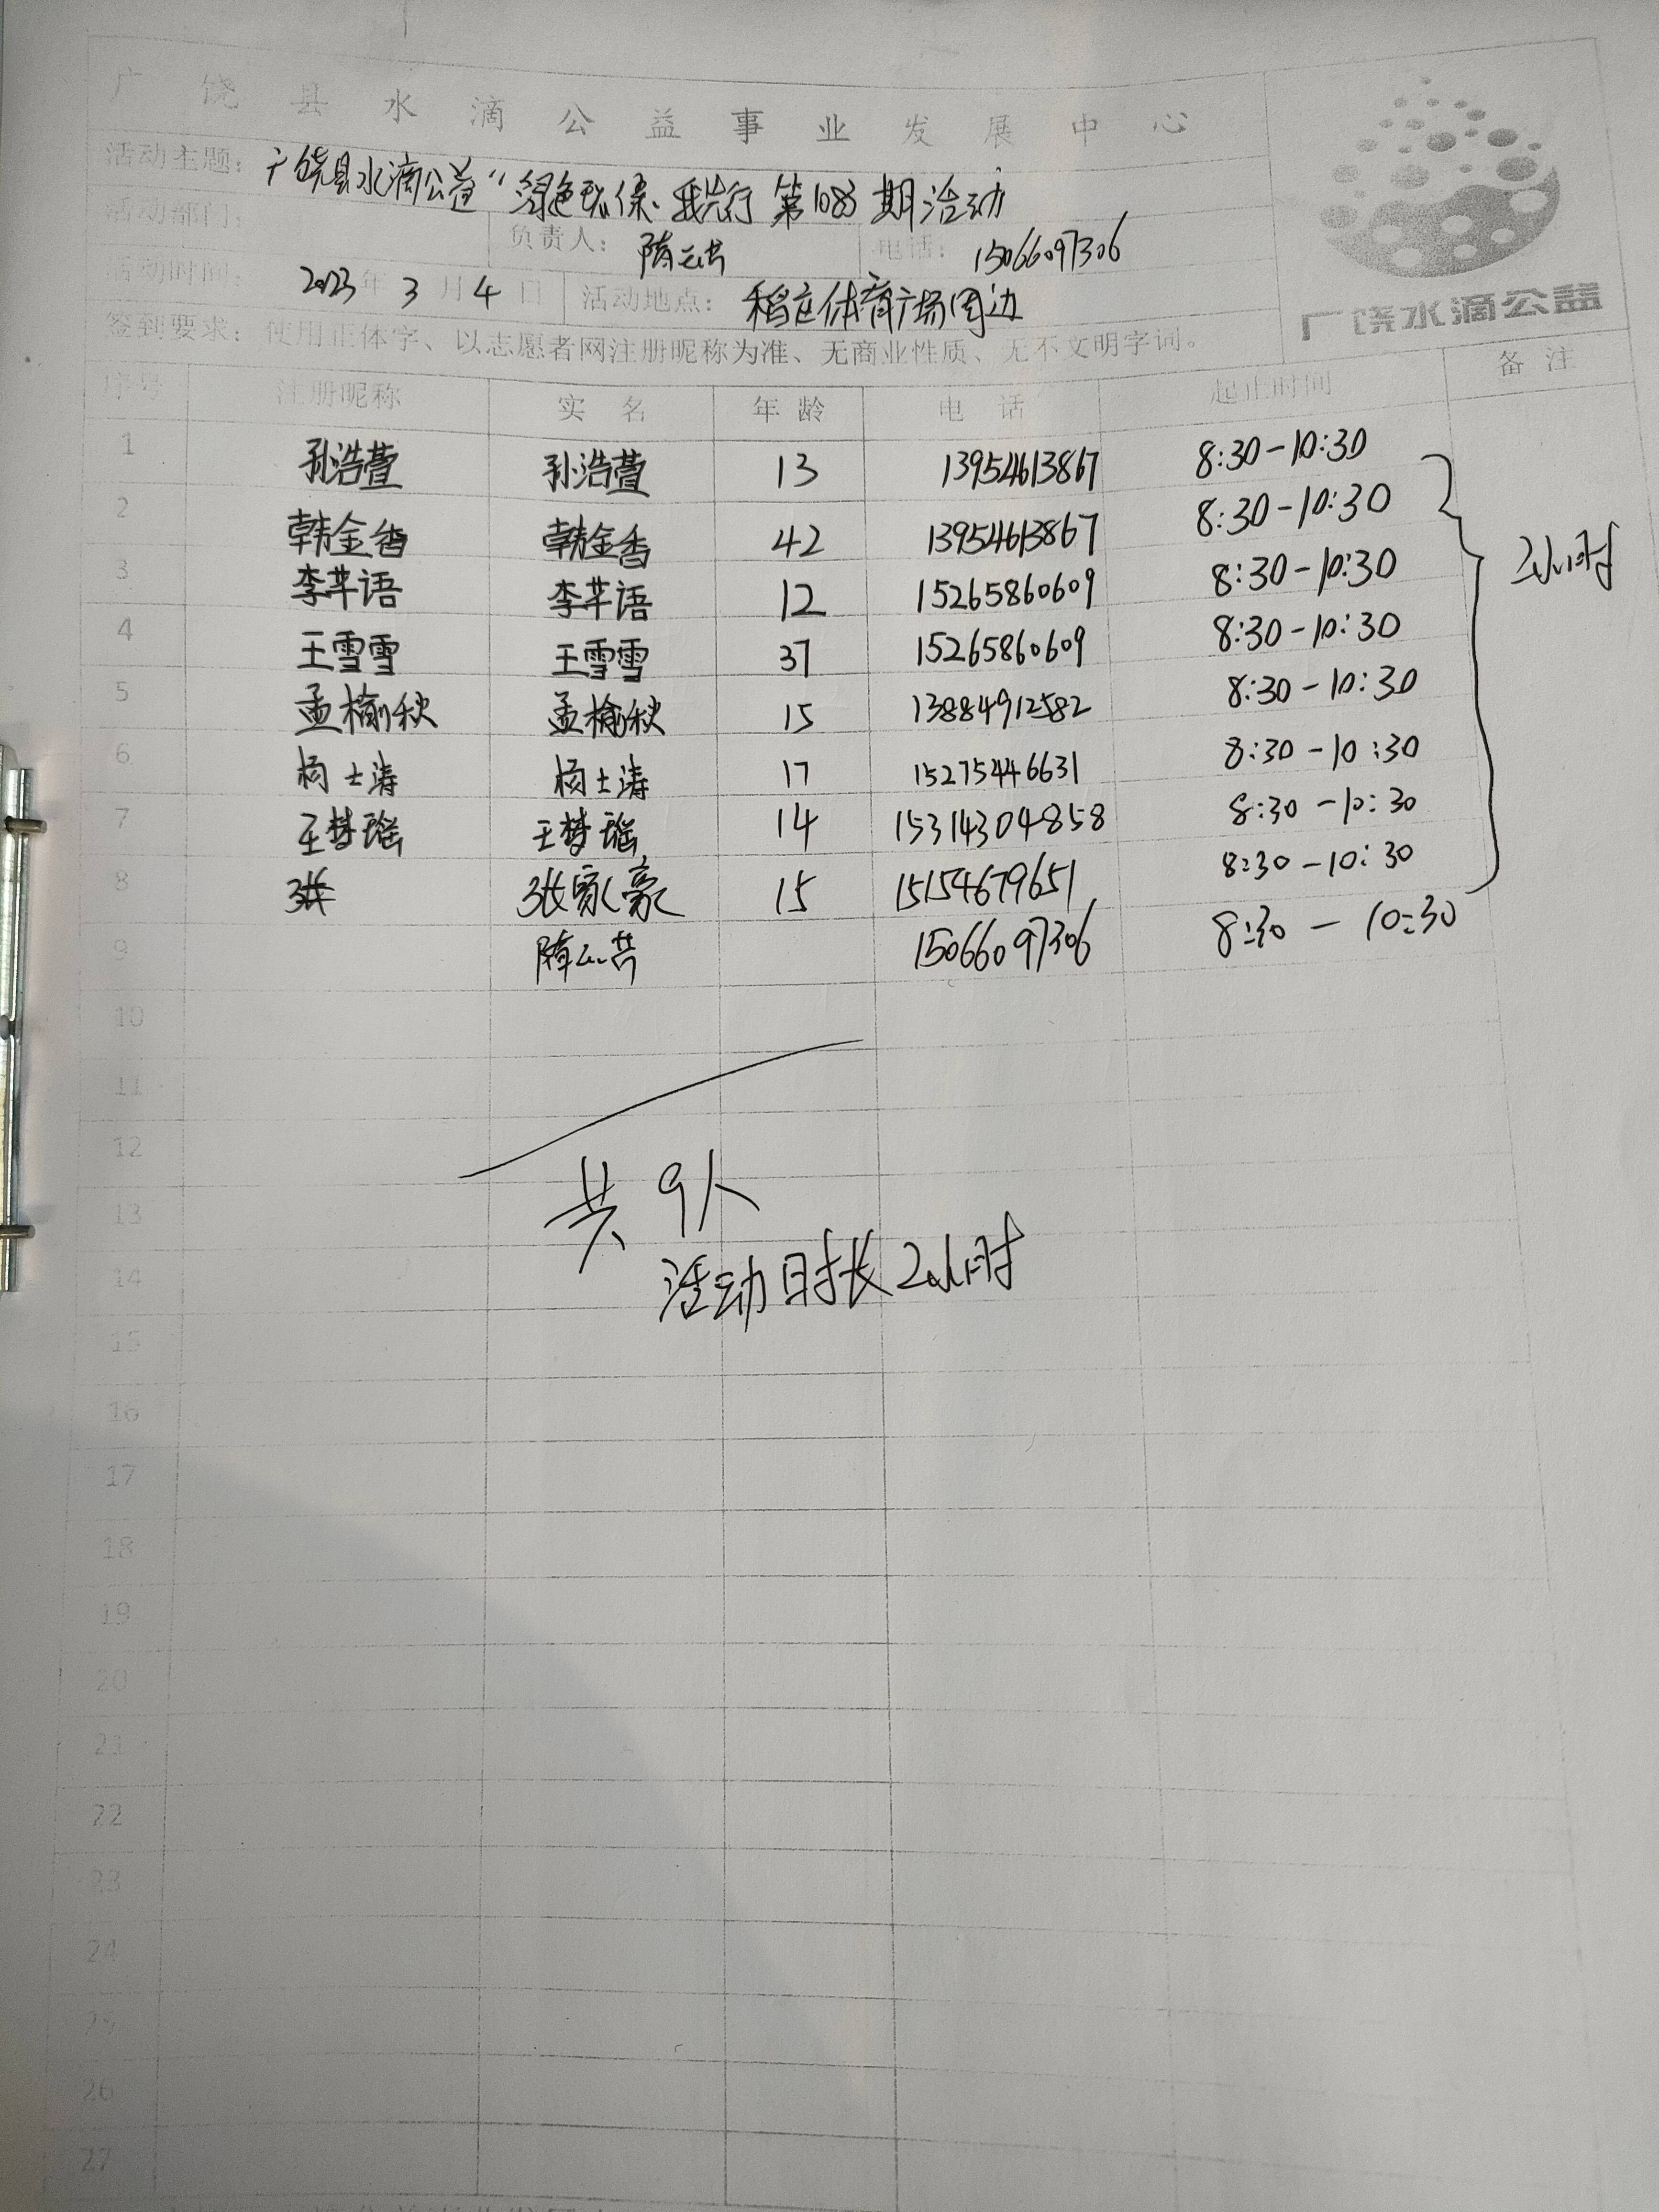 广饶县水滴公益事业发展中心
活动主题：广饶县水滴公益“绿色环保.我先行 第1083期活动
活动部门： 负责人： 电话：15066097306
活动时间 2023年3月4日 活动地点：稻庄体育广场周边
广饶水滴公益
签到要求：使用正体字、以志愿者网注册昵称为准、无商业性质、无不文明字词。
序号 注册昵称 实 名 年 龄 电 话 起止时间 备 注
1 孙浩萱 孙浩萱 13 13954613867 8:30-10:30
2 韩金香 韩金香 42 13954613867 8:30-10:30
2小时
3 李芊语 李芊语 12 15265860609 8:30-10:30
4 王雪雪 王雪雪 37 15265860609 8:30-10:30
5 孟榆秋 孟榆秋 15 13884912582 8:30-10:30
6 杨士涛 杨士涛 17 15275446631 8:30-10:30
7 王梦瑶 王梦瑶 14 15314304858 8:30-10:30
8 张 张家豪 15 15154679651 8:30-10:30
9 15066097306 8:30-10:30
10
11
12
共9人
13
活动时长2小时
14
15
16
17
18
19
20
21
22
23
24
25
26
27